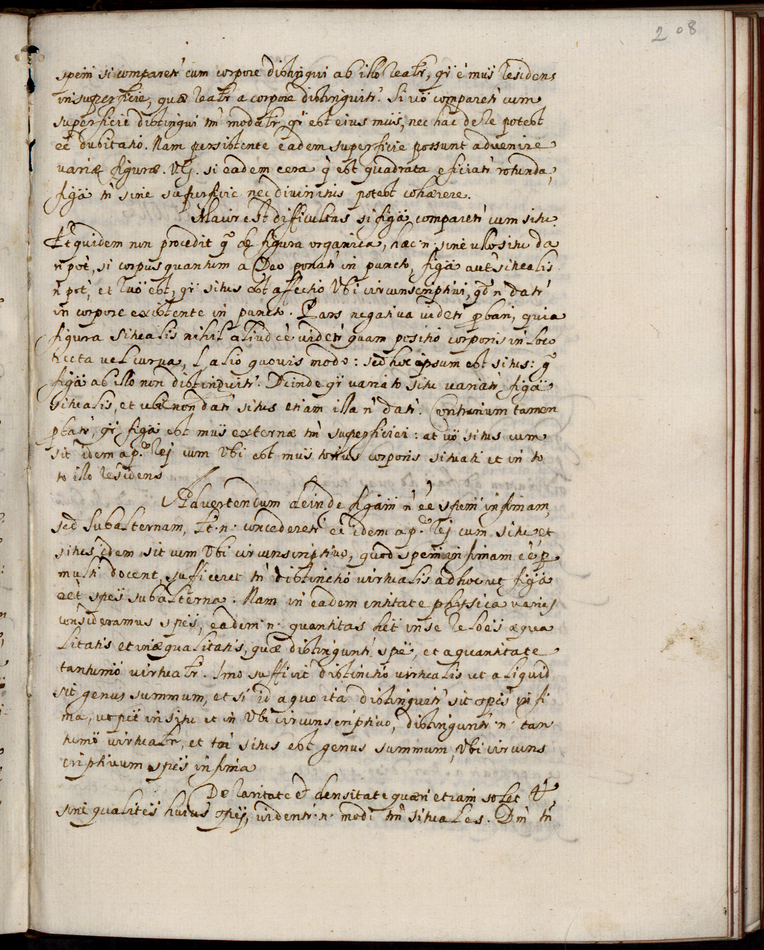 208
speciei si comparet' cum corpore distingui ab illo realr', q' ē mus residens
in superficie, quæ realr' a corpore distinguit'. Si vō comparet' cum
superficie distingui tm' modalr', q' est eius mus, nec hac de re potest
eē dubitatio. Nam persistente eadem superficie possunt advenire
variæ figuræ. V.g. si eadem cera q' est quadrata eficiat' rotunda,
figā tn' sine superficie nec divinitus potest cohærere.
Maior est difficultas si figā comparet' cum situ.
Et quidem non procedit q' de figura organica, hac n' sine ullo situ da
ri pot', si corpus quantum a Deo ponat' in puncto, figā aut' situalis
n' pot', et ruō est, q' situs est affectio Ubi circunscriptivi, qd' n' dat'
in corpore existente in puncto. Pars negativa videt' probari, quia
figura situalis nihil aliud eē videt' quam positio corporis in loco
recta vel curva, l' alio quovis modo: sed hoc ipsum est situs: g'
figā ab illo non distinguit'. Deinde q' variato situ variat' figā
situalis, et ubi non dat' situs etiam illa n' dat'. Contrarium tamen
plat', q' figā est mus externæ tm' superficiei: at vō situs cum
sit idem a p. rej cum Ubi est mus totius corporis situati et in to
to illo residens
Advertendum deinde figām n' eē speciem infimam
sed subalternam, et n' concederet' eē idem a p. rej cum situ et
situs idem sit cum Ubi circunscriptivo, quod speciem infimam eē p
multi docent, sufficeret tn' distinctio virtualis ad hoc ut figā
eēt speēs subalterna. Nam in eadem entitate physica varias
consideramus speēs, eadem n' quantitas het in se rōes æqua
litatis et inæqualitatis, quæ distinguntr' spē, et a quantitate
tantummō virtualr'. Imo sufficit distinctio virtualis ut aliquid
sit genus summum, et si id a quo ita distinguit' sit speēs infi
ma, ut pōt in situ et in Ubi circunscriptivo, distinguntr' n' tan
tumō virtualr', et tn' situs est genus summum, Ubi circuns
criptivum speēs infima
De raritate et densitate quæri etiam solet
sint qualitēs huius spēi, videntr' n' modi tm' situales. Dm' tn'